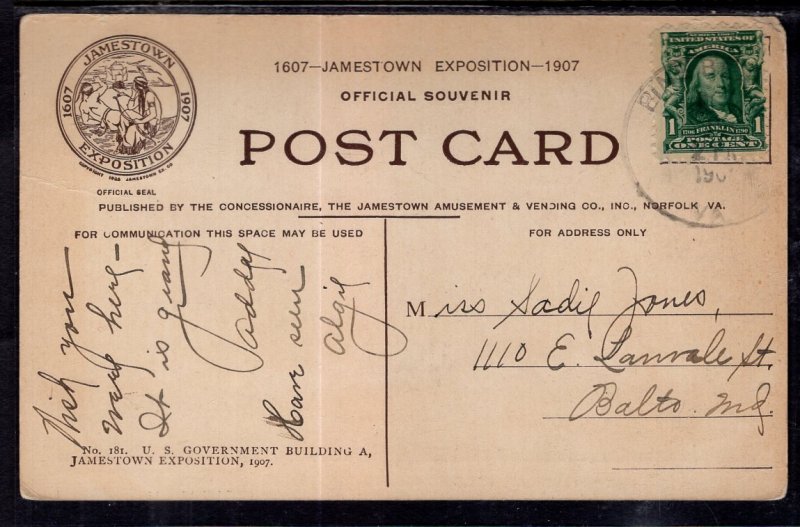 JAMESTOWN
1607 1907
EXPOSITION
COPYRIGHT 1906 JAMESTOWN EX. CO.
OFFICIAL SEAL
1607—JAMESTOWN EXPOSITION—1907
OFFICIAL SOUVENIR
POST CARD
SERIES 1902
UNITED STATES OF
AMERICA
1 1706 FRANKLIN 1790 1
POSTAGE
ONE CENT
190
VA
PUBLISHED BY THE CONCESSIONAIRE, THE JAMESTOWN AMUSEMENT & VENDING CO., INC., NORFOLK VA.
FOR COMMUNICATION THIS SPACE MAY BE USED
FOR ADDRESS ONLY
Wish you
were here—
It is grand
Paddy
Have seen
Algie
Miss Sadie Jones,
1110 E. Lanvale St.
Balto. Md.
No. 181. U. S. GOVERNMENT BUILDING A,
JAMESTOWN EXPOSITION, 1907.